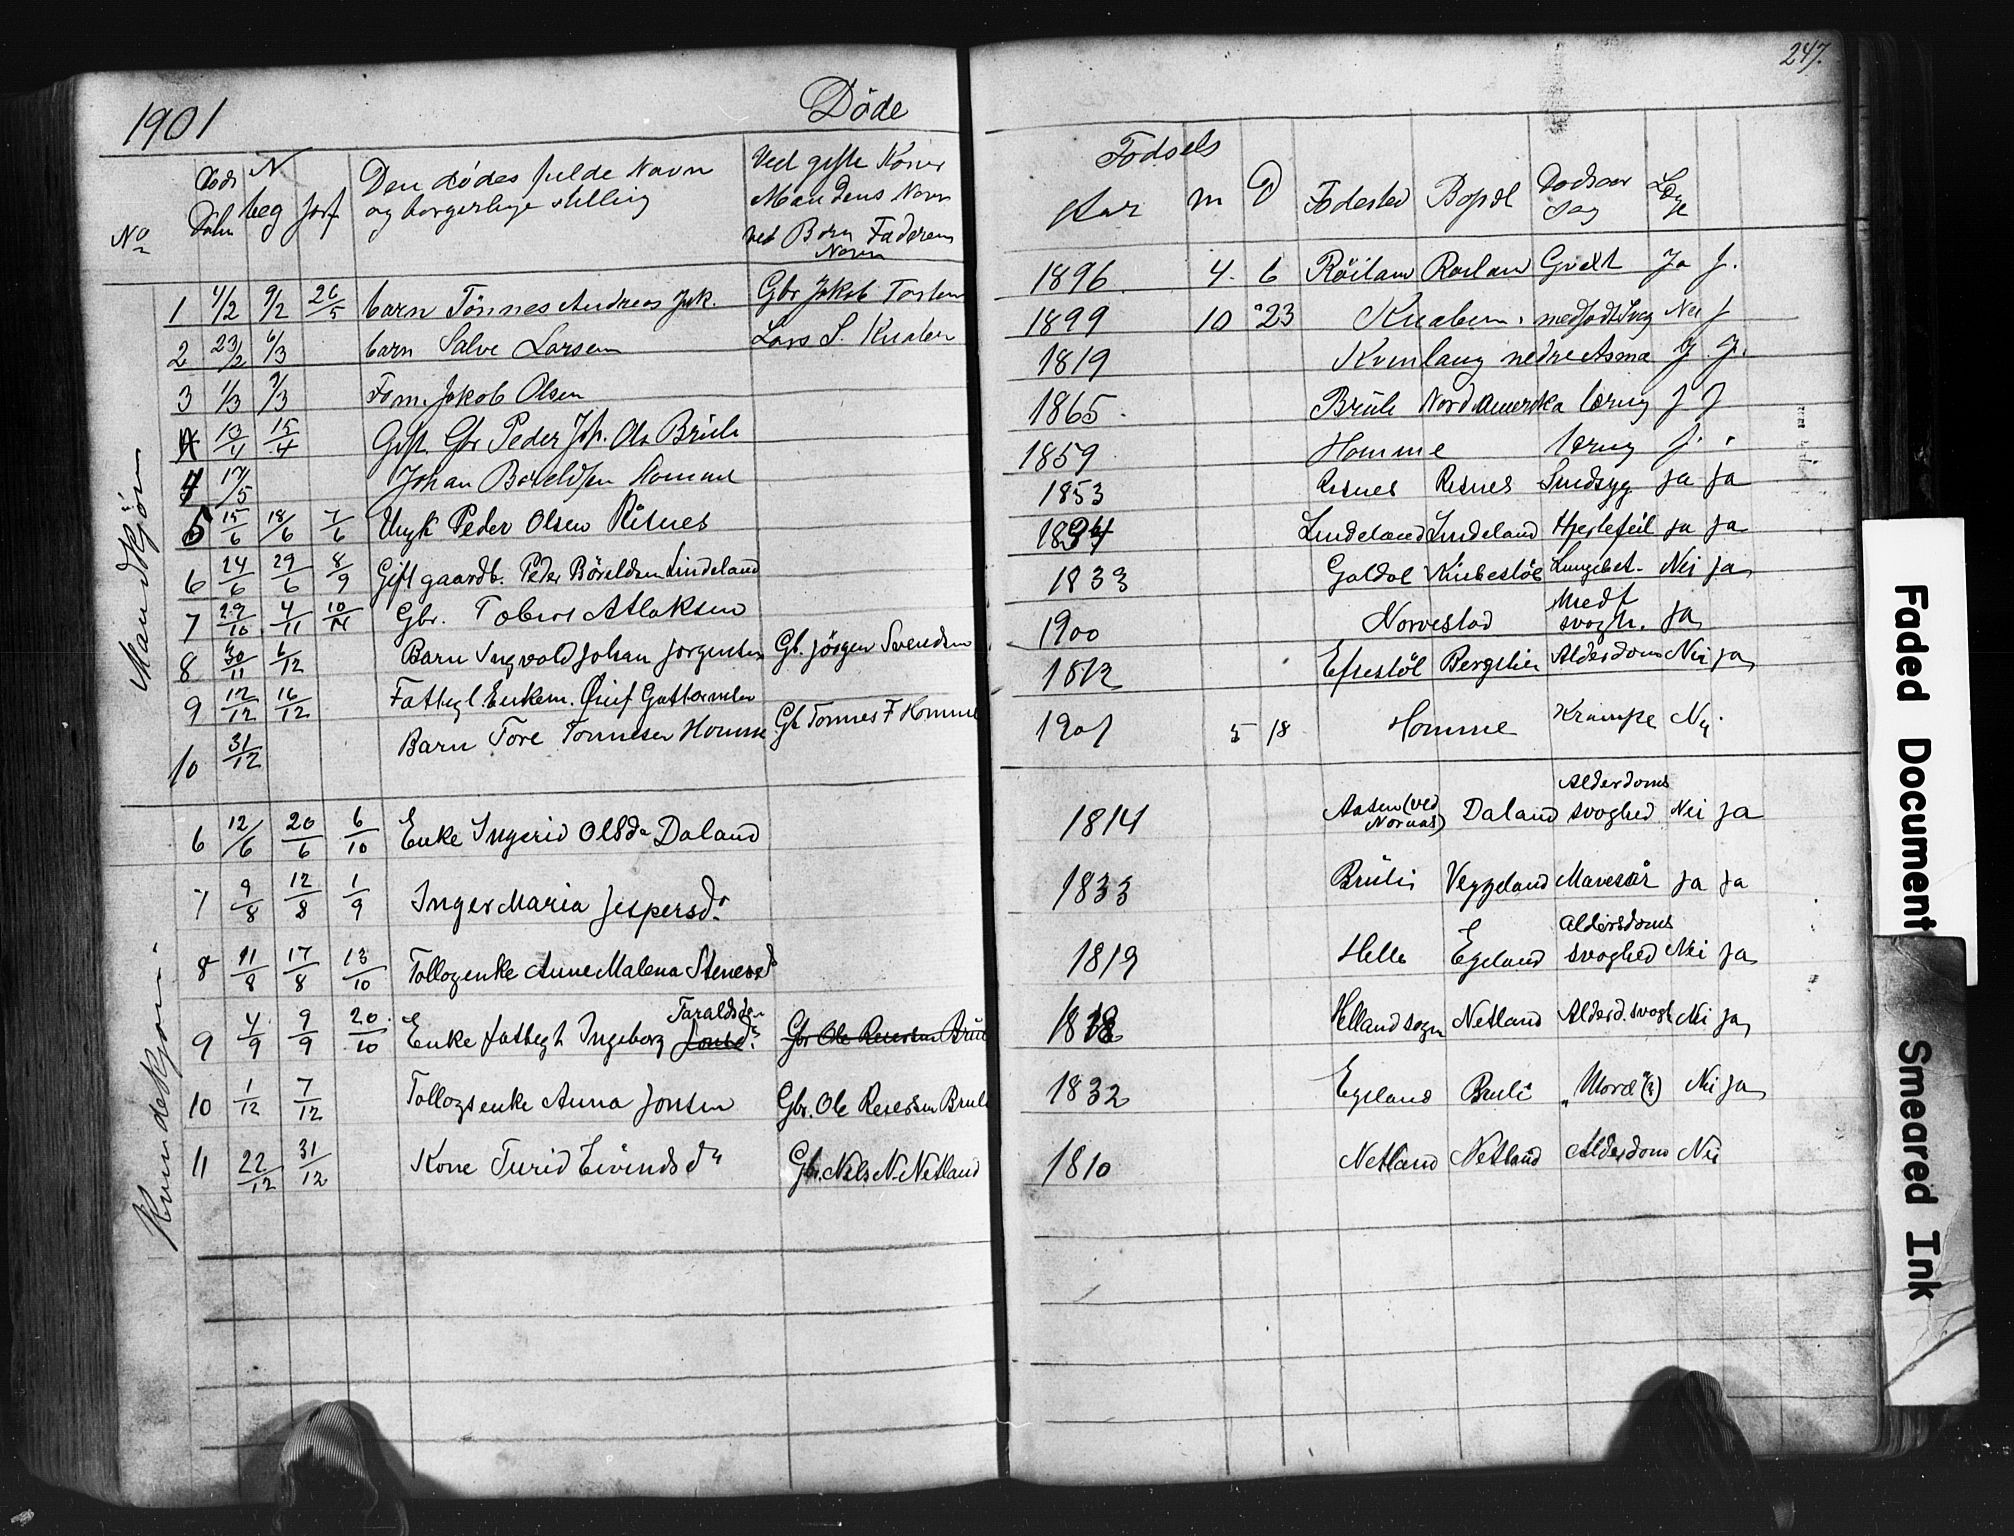 247.
1901 Døde
No Døds Datn N beg Jorf Den dødes fulde Navn og borgerlige stilling Ved gifte Koner Mandens Navn ved Børn Faderens Navn Fødsels Aar M D Fødested Bopæl Dødsaarsag Læge
Mandkjøn
1 4/2 9/2 26/5 barn Tönnes Andreas Jak. Gbr Jakob Torsten 1896. 4. 6 Röilam Roilan Gvalt Ja J.
2 23/2 6/3 barn Salve Larsen Lars S. Knaben 1899 10 23 Knaben. medfødt Svag Nei J
3 1/3 9/3 Fom. Jakob Olsen 1819 Kvinlaug nedre Asma J. J.
4 13/4 15/4 Gift Gbr Peder Joh. Ols Brüli 1865. Brüli Nord Amerika læring J J
4 17/5 Johan Böreldsen Homme 1859 Homme læring J.
5 15/6 18/6 7/6 Ungk Peder Olsen Risnes 1853 Risnes Risnes Sindsyg ja ja
6 24/6 29/6 8/9 Gift gaardb. Peder Böreldsen Lindeland 1834 Lindeland Lindeland Hjertefeil ja ja
7 29/10 4/11 10/11 Gbr. Tobias Atlaksen 1833 Galdal Kinbestöl Lungebet. Nei ja
8 30/11 6/12 Barn Ingvald Johan Jørgensen Gb. Jörgen Svendsen 1900 Norvestad Medf svagh. ja
9 12/12 16/12 Fattigl Enkem. Guttormsen 1812 Efsestöl Bergslien Alderdom Nei ja
10 31/12 Barn Tore Tonnesen Homme Gb Tonnes F Homme 1901 5 18 Homme Krampe Nei
Kvindekjøn.
6 12/6 20/6 6/10 Enke Ingerid Olsda Daland 1814 Aasen (ved Nornas) Daland Alderdoms svaghed Nei ja
7 9/8 12/8 1/9 Inger Maria Jespersdr. 1833 Brüli Veggeland Mavesår ja ja
8 11/8 17/8 13/10 Tollogenke Anne Malena Stenersd 1819 Helle Egeland Aldersdoms svaghed Nei ja
9 4/9 9/9 20/10 Enke fattigl Ingeborg Jonsd. Taraldsdr Gbr Ole Reiersen Brüli 1818 Helland sogn Netland Alderd. svagh Nei ja
10 1/12 7/12 Tollogsenke Anna Jonsen Gbr. Ole Reiersen Brüli 1832 Egeland Bruli „Mord"(?) Nei ja
11 22/12 31/12 Kone Turid Eivindsdr Gbr. Nils N. Netland 1810 Netland Netland Alderdom Nei
Faded Document
Smeared Ink